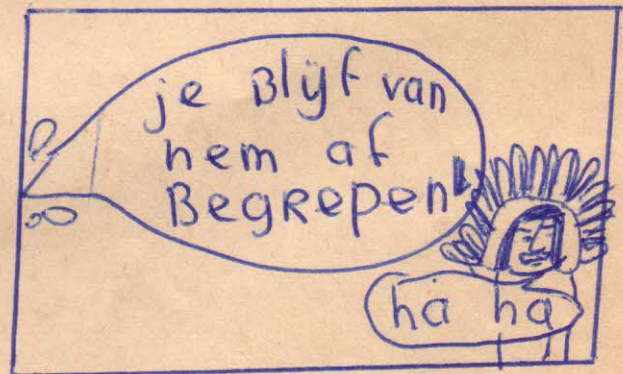 je Blijf van
hem af
BegRepen!
ha ha